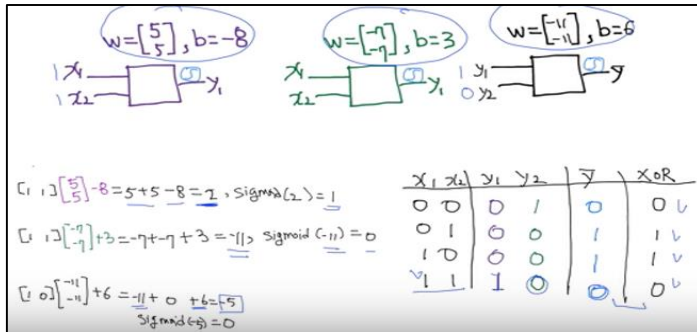 w=[5 5], b=-8
w=[-7 -7], b=3
w=[-11 -11], b=6
1 x₁ S y₁
1 x₂
x₁ S y₁
x₂
1 y₁ S ȳ
0 y₂
[1 1][5 5]-8=5+5-8=2, sigmoid(2)=1
[1 1][-7 -7]+3=-7+-7+3=-11, sigmoid(-11)=0
[1 0][-11 -11]+6=-11+0+6=-5
sigmoid(-5)=0
x₁ x₂ y₁ y₂ ȳ XOR
0 0 0 1 0 0
0 1 0 0 1 1
1 0 0 0 1 1
1 1 1 0 0 0